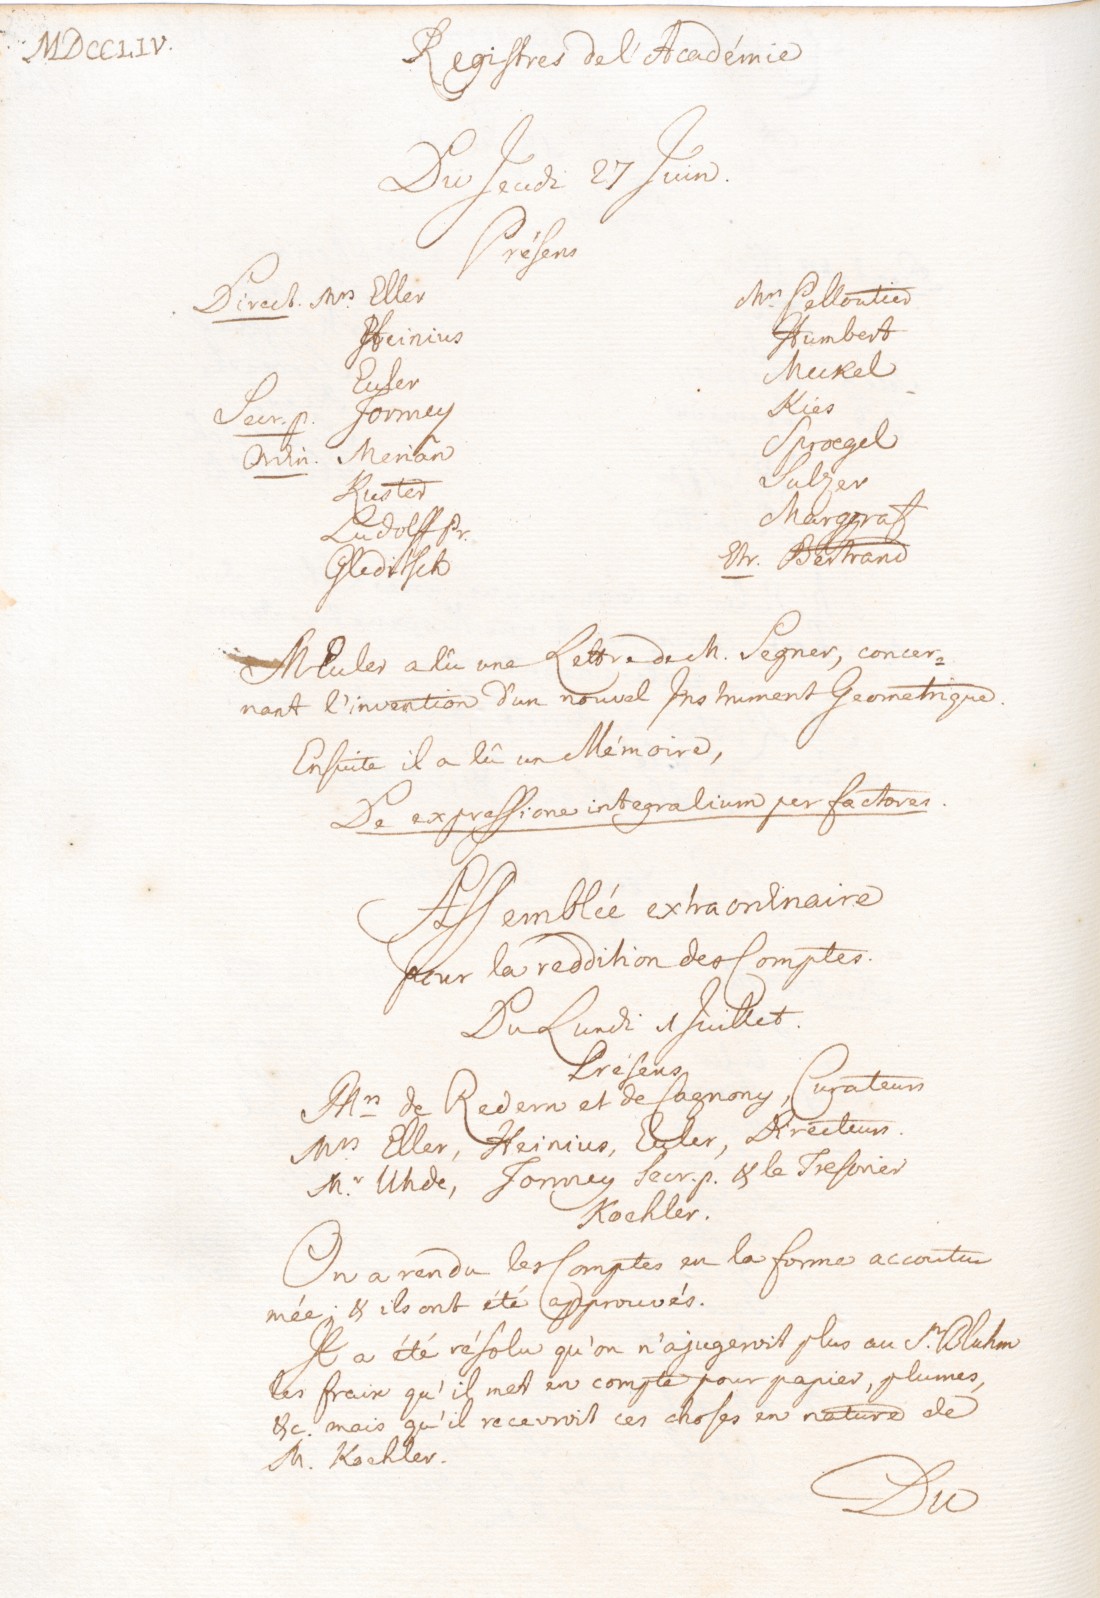 MDCCLIV.
Registres de l'Académie
Du Jeudi 27 Juin.
Présens
Direct. Mrs Eller
Heinius
Euler
Secr. p. Formey
Ordin. Merian
Kuster
Ludolff Pr.
Gleditsch
Mrs Pelloutier
Humbert
Meckel
Kies
Sproegel
Sulzer
Marggraf
Etr. Bertrand
M Euler a lû une Lettre de M. Segner, concer=
nant l'invention d'un nouvel Instrument Geometrique.
Ensuite il a lû un Mémoire,
De expressione integralium per factores.
Assemblée extraordinaire
pour la reddition des Comptes.
Du Lundi 1 Juillet.
Présens
Mrs de Redern et de Cagnony, Curateurs
Mrs Eller, Heinius, Euler, Directeurs.
Mr. Uhde, Formey Secr. p. & le Tresorier
Koehler.
On a rendu les Comptes en la forme accoutu
mée; & ils ont été approuvés.
Il a été résolu qu'on n'ajugeroit plus au Sr. Bluhm
les fraix qu'il met en compte pour papier, plumes,
&c. mais qu'il recevroit ces choses en nature de
M. Koehler.
Du